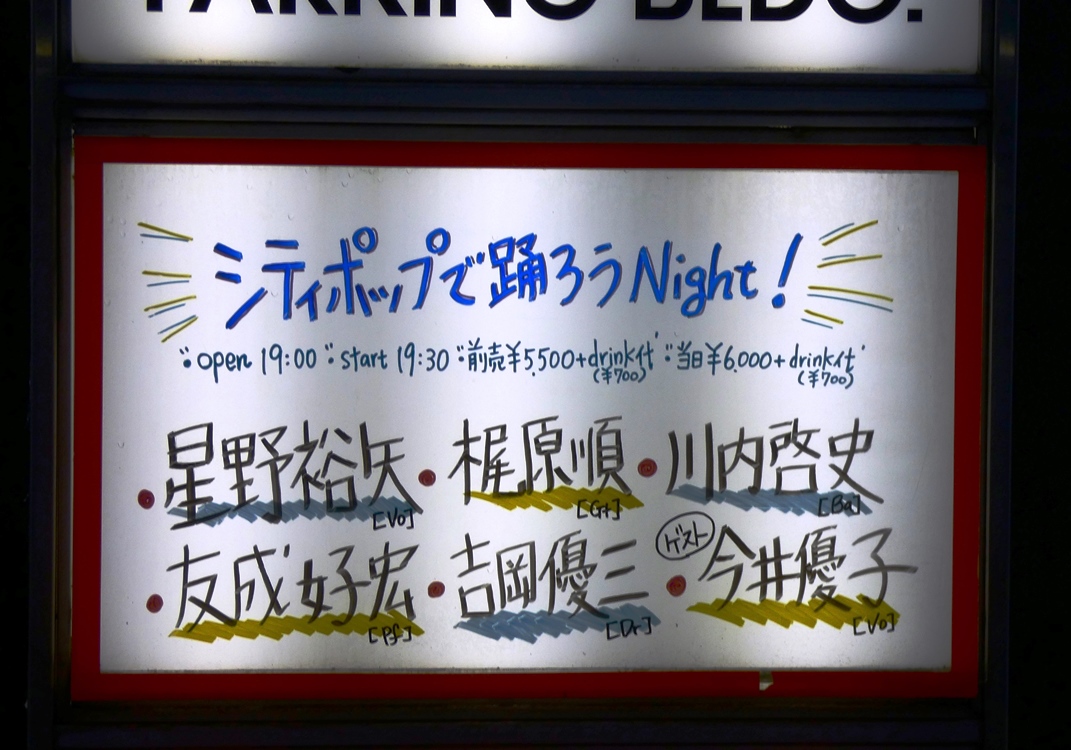 PARKING BLDG.
シティポップで踊ろうNight!
open 19:00 start 19:30 前売¥5,500+drink代 当日¥6,000+drink代
(¥700) (¥700)
星野裕矢 梶原順 川内啓史
[Vo] [Gt] [Ba]
ゲスト
友成好宏 吉岡優三 今井優子
[Pf] [Dr] [Vo]